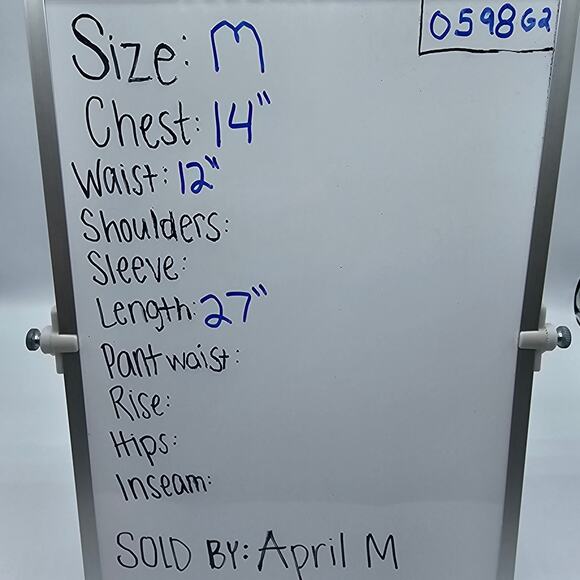 059862
Size: M
Chest: 14"
Waist: 12"
Shoulders:
Sleeve:
Length: 27"
Pant waist:
Rise:
Hips:
Inseam:
SOLD BY: April M